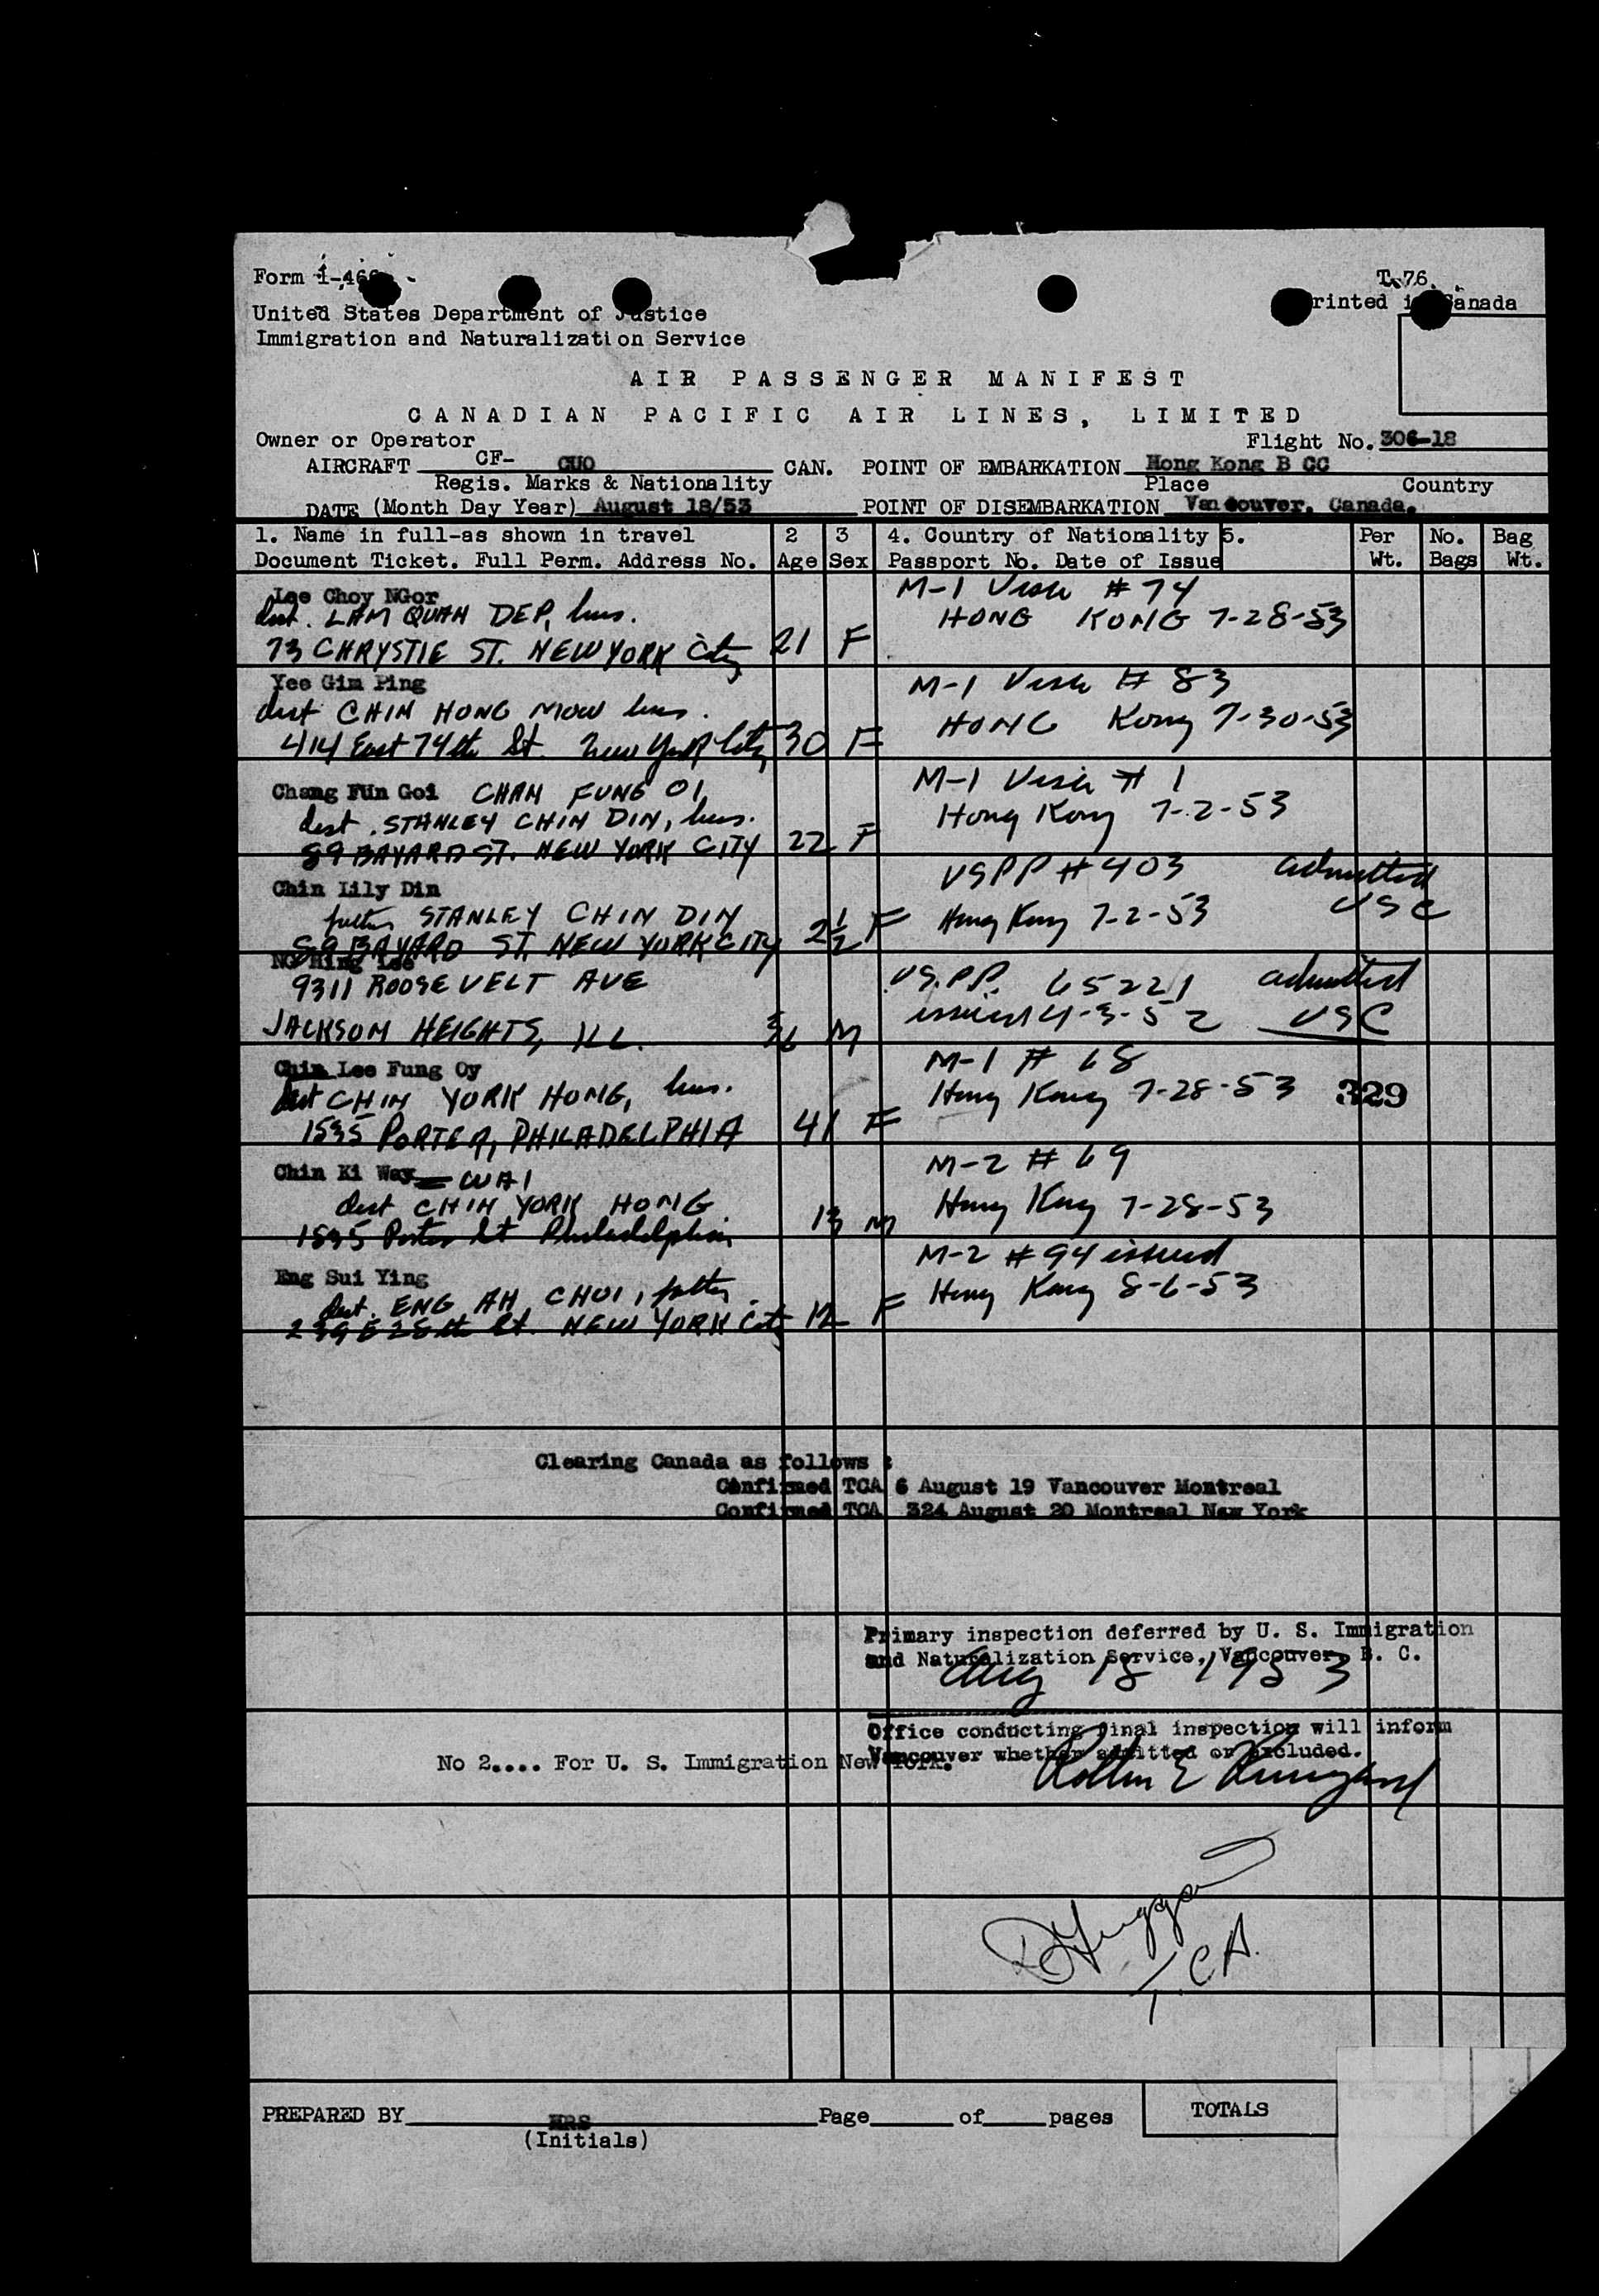 Form I-466
T.76.
United States Department of Justice
Printed in Canada
Immigration and Naturalization Service
AIR PASSENGER MANIFEST
CANADIAN PACIFIC AIR LINES, LIMITED
Owner or Operator
Flight No. 306-18
AIRCRAFT CF- CUO CAN. POINT OF EMBARKATION Hong Kong B CC
Regis. Marks & Nationality Place Country
DATE (Month Day Year) August 18/53 POINT OF DISEMBARKATION Vancouver, Canada.
1. Name in full-as shown in travel 2 3 4. Country of Nationality 5. Per No. Bag
Document Ticket. Full Perm. Address No. Age Sex Passport No. Date of Issue Wt. Bags Wt.
Lee Choy NGor M-1 Visa # 74
dest. LAM QUAN DEP, hus. HONG KONG 7-28-53
73 CHRYSTIE ST. NEW YORK City 21 F
Yee Gim Ping M-1 Visa # 83
dest CHIN HONG MOW hus. HONG Kong 7-30-53
414 East 74th St. New York City 30 F
Chang Fun Goi CHAN FUNG OI M-1 Visa # 1
dest. STANLEY CHIN DIN, hus. Hong Kong 7-2-53
89 BAYARD ST. NEW YORK CITY 22 F
Chin Lily Din USPP # 403 admitted
father STANLEY CHIN DIN Hong Kong 7-2-53 USC
89 BAYARD ST. NEW YORK CITY 2½ F
NG Hing Lee
9311 ROOSEVELT AVE U.S.PP. 65221 admitted
JACKSON HEIGHTS, ILL. 36 M issued 4-3-52 USC
Chin Lee Fung Oy M-1 # 68
dest CHIN YORK HONG, hus. Hong Kong 7-28-53 329
1535 PORTER, PHILADELPHIA 41 F
Chin Ki Way = WAI M-2 # 69
dest CHIN YORK HONG Hong Kong 7-28-53
1535 Porter St Philadelphia 13 M
Eng Sui Ying M-2 # 94 issued
dest. ENG AH CHOI, father Hong Kong 8-6-53
239 E 28th St. NEW YORK City 12 F
Clearing Canada as follows :
Confirmed TCA 6 August 19 Vancouver Montreal
Confirmed TCA 324 August 20 Montreal New York
Primary inspection deferred by U. S. Immigration
and Naturalization Service, Vancouver, B. C.
Aug 18 1953
Office conducting final inspection will inform
Vancouver whether admitted or excluded.
No 2.... For U. S. Immigration New York.
T.C.A.
PREPARED BY HRS Page of pages TOTALS
(Initials)